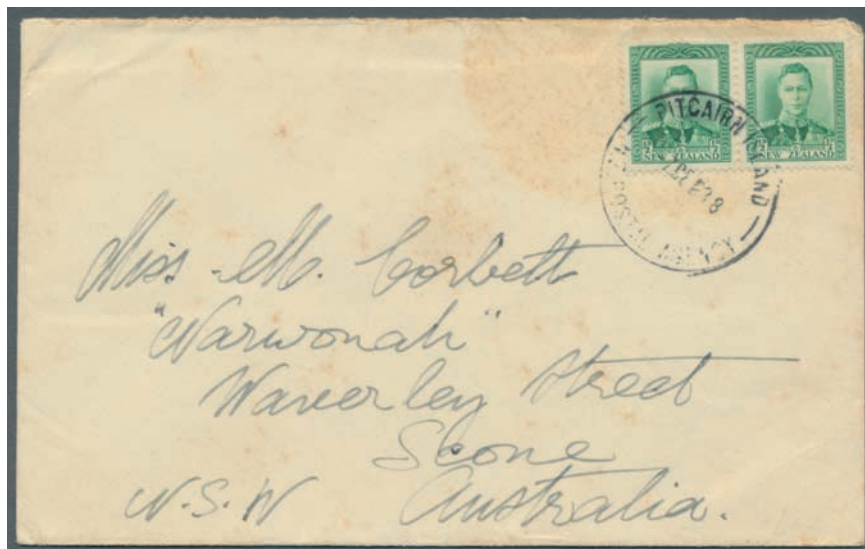 ½ NEW ZEALAND ½
½ NEW ZEALAND ½
PITCAIRN ISLAND
DE 38
POSTAL AGENCY
Miss. M. Corbett
"Narwonah"
Waverley Street
Scone
N.S.W Australia.